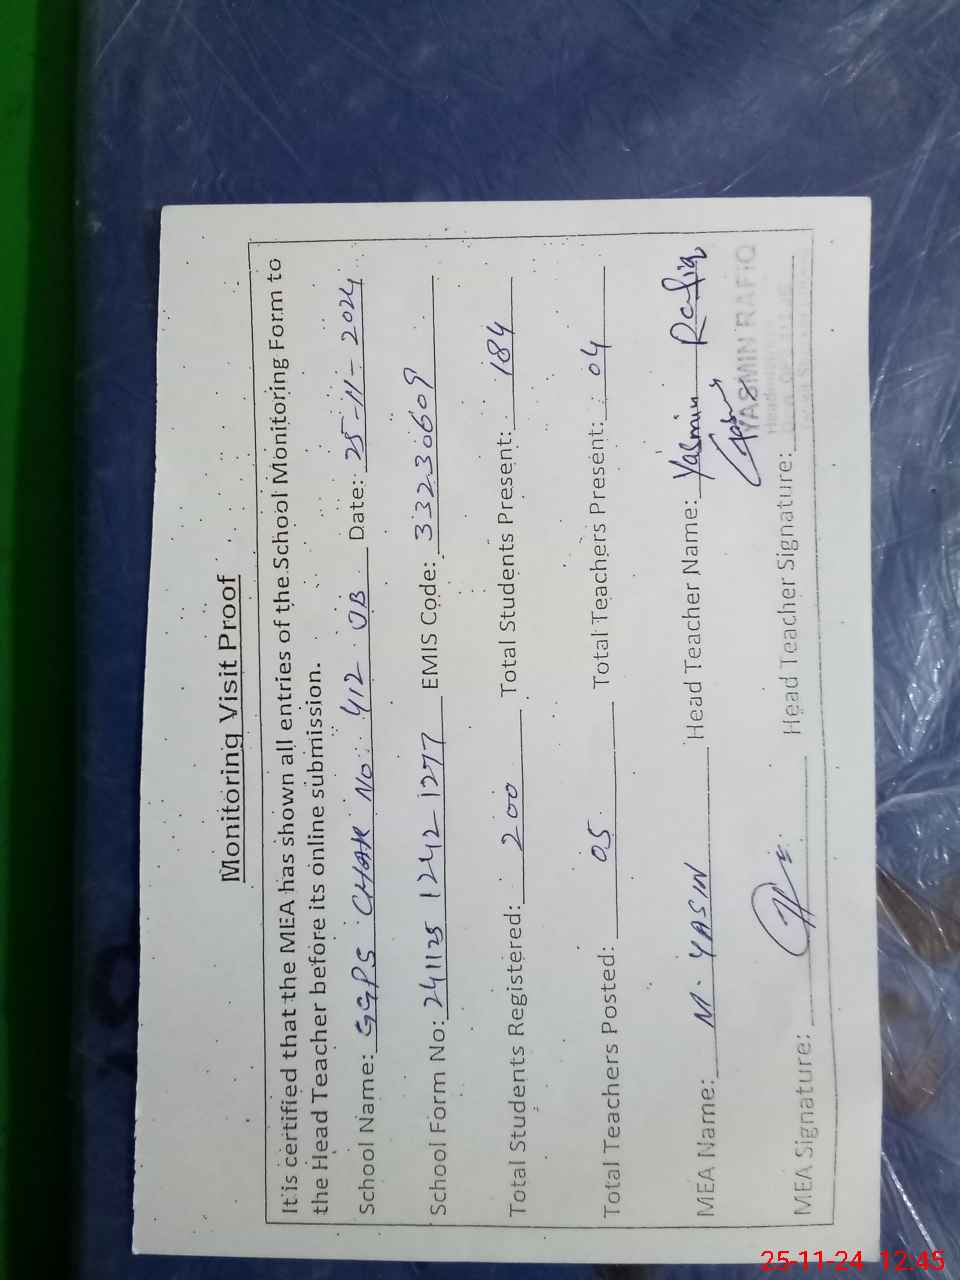 Monitoring Visit Proof
It is certified that the MEA has shown all entries of the School Monitoring Form to
the Head Teacher before its online submission.
School Name: GGPS CHAK No. 412 JB Date: 25-11-2024
School Form No: 241125 1242 1277 EMIS Code: 33230609
Total Students Registered: 200 Total Students Present: 184
Total Teachers Posted: 05 Total Teachers Present: 04
MEA Name: M. YASIN Head Teacher Name: Yasmin Rafiq
YASMIN RAFIQ
MEA Signature: Head Teacher Signature:
25-11-24 12:45